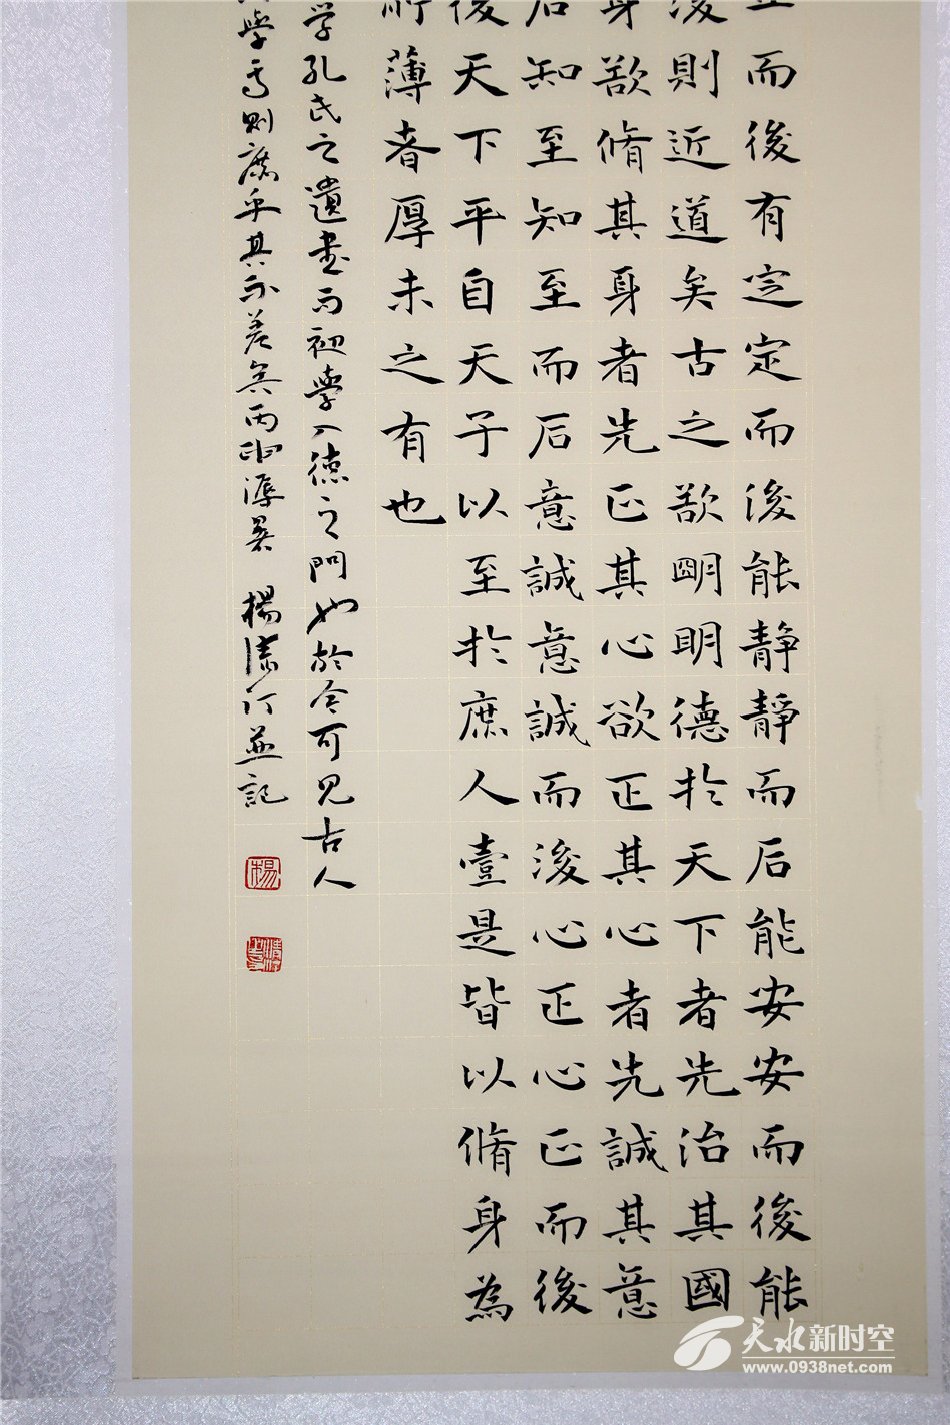 而後有定定而後能静靜而后能安安而後能
後則近道矣古之欲明明德扵天下者先治其國
身欲脩其身者先正其心欲正其心者先誠其意
后知至知至而后意誠意誠而後心正心正而後
後天下平自天子以至扵庶人壹是皆以脩身為
所薄者厚未之有也
学孔氏之遺書而初學入德之門也於今可見古人
學焉則庶乎其不差矣丙申
楊清汀並記
天水新时空
www.0938net.com